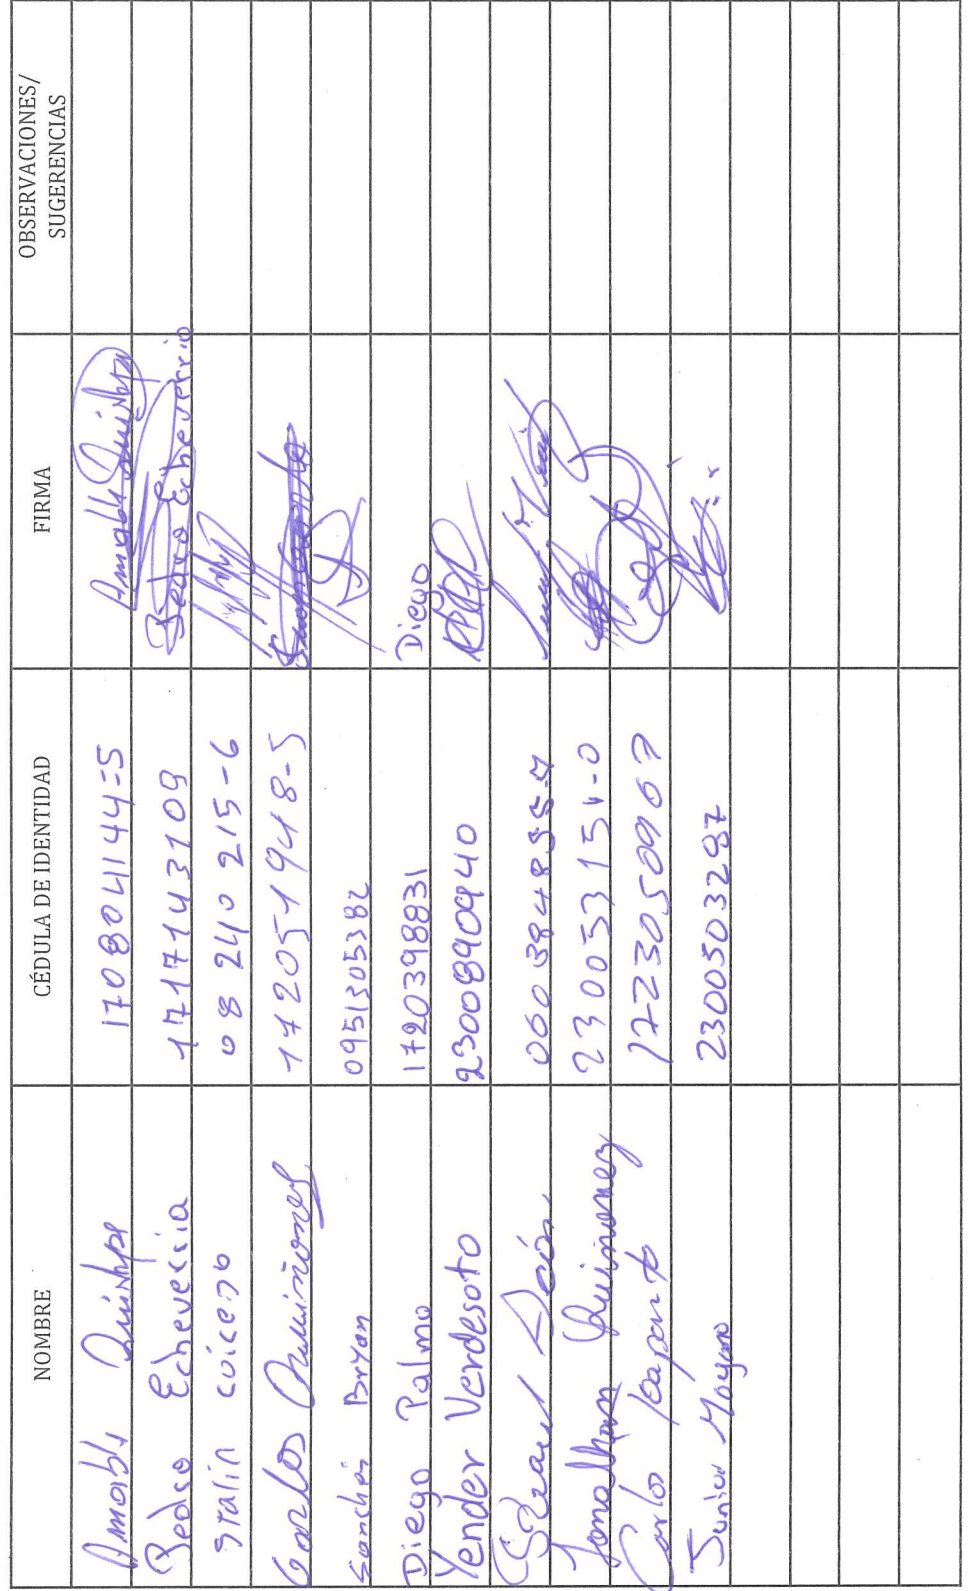 NOMBRE CÉDULA DE IDENTIDAD FIRMA OBSERVACIONES/
SUGERENCIAS
Amable 170804144-5 Amable
Pedro Echeverria 1717143109 Pedro Echeverrio
Stalin 08 240 215-6
Carlos Quiñonez 172051948-5
Sanchez Bryan 0951305382
Diego Palmo 1720398831 Diego
Yender Verdesoto 2300890940
060384895-7
Jonathan Quinonez
Carlos 1723050967
Junior Moyano 2300503297